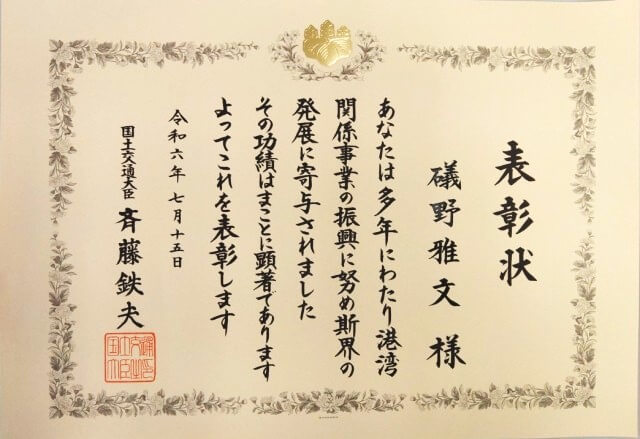 表彰状
礒野雅文 様
あなたは多年にわたり港湾
関係事業の振興に努め斯界の
発展に寄与されました
その功績はまことに顕著であります
よってこれを表彰します
令和六年七月十五日
国土交通大臣 斉藤鉄夫